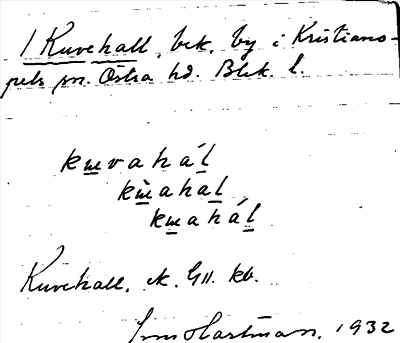 1 Kuvehall, bek. by i Kristiano-
pels sn. Östra hd. Blek. l.
kuvahál
kùahal
kuahál
Kuvehall, ek. G11. kb.
Hartman, 1932